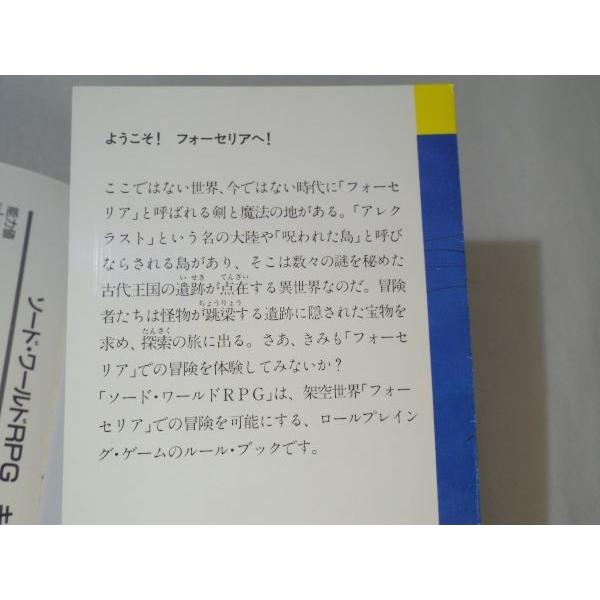 ようこそ！ フォーセリアへ！
ここではない世界、今ではない時代に「フォーセ
リア」と呼ばれる剣と魔法の地がある。「アレク
ラスト」という名の大陸や「呪われた島」と呼び
ならされる島があり、そこは数々の謎を秘めた
いせき てんざい
古代王国の遺跡が点在する異世界なのだ。冒険
ちょうりょう
者たちは怪物が跳梁する遺跡に隠された宝物を
たんさく
求め、探索の旅に出る。さあ、きみも「フォーセ
リア」での冒険を体験してみないか？
「ソード・ワールドRPG」は、架空世界「フォー
セリア」での冒険を可能にする、ロールプレイン
グ・ゲームのルール・ブックです。
能力値
ソード・ワールドRPG